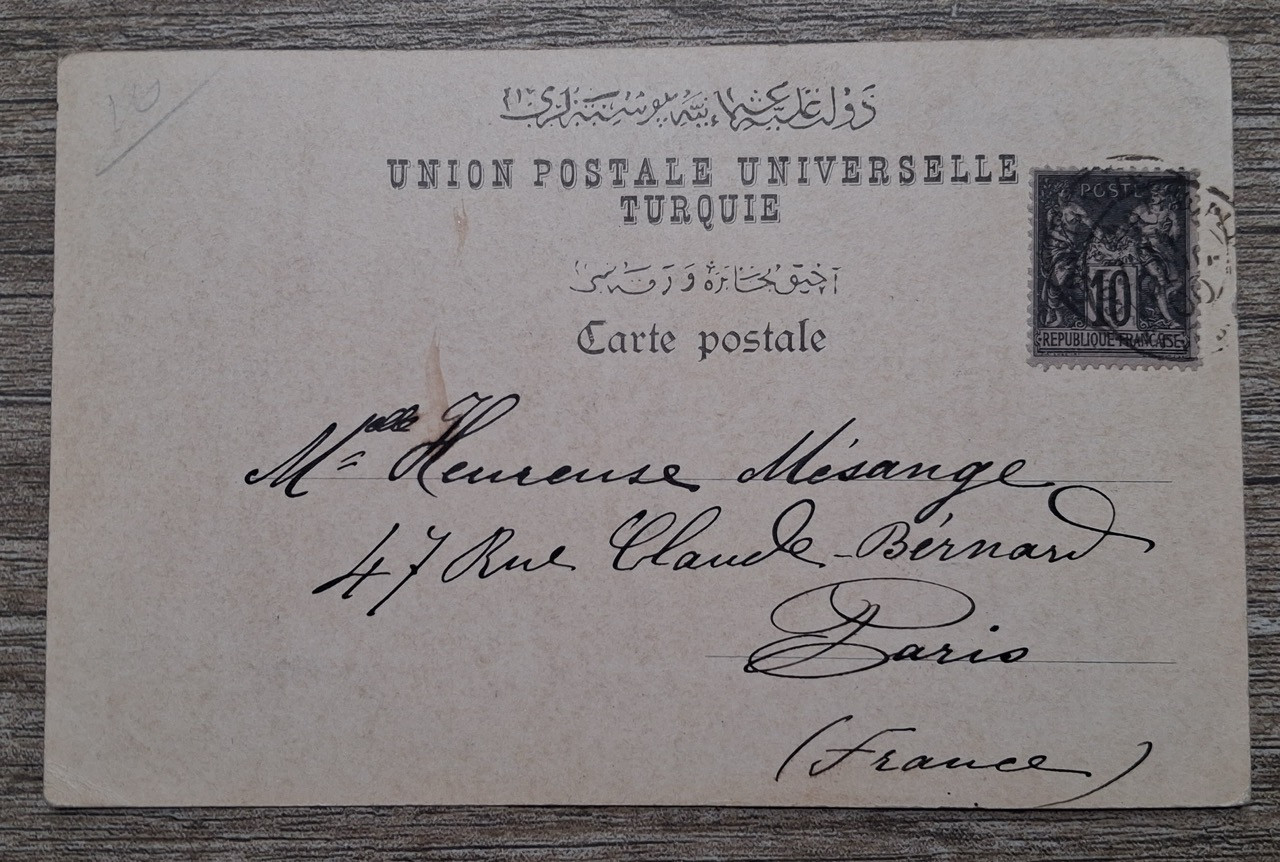 دولت علیهٔ عثمانیه پوسته‌لری
UNION POSTALE UNIVERSELLE
TURQUIE
آچیق مخابره ورقه سی
Carte postale
POSTE
10
REPUBLIQUE FRANÇAISE
Melle Heureuse Mésange
47 Rue Claude-Bérnard
Paris
(France)